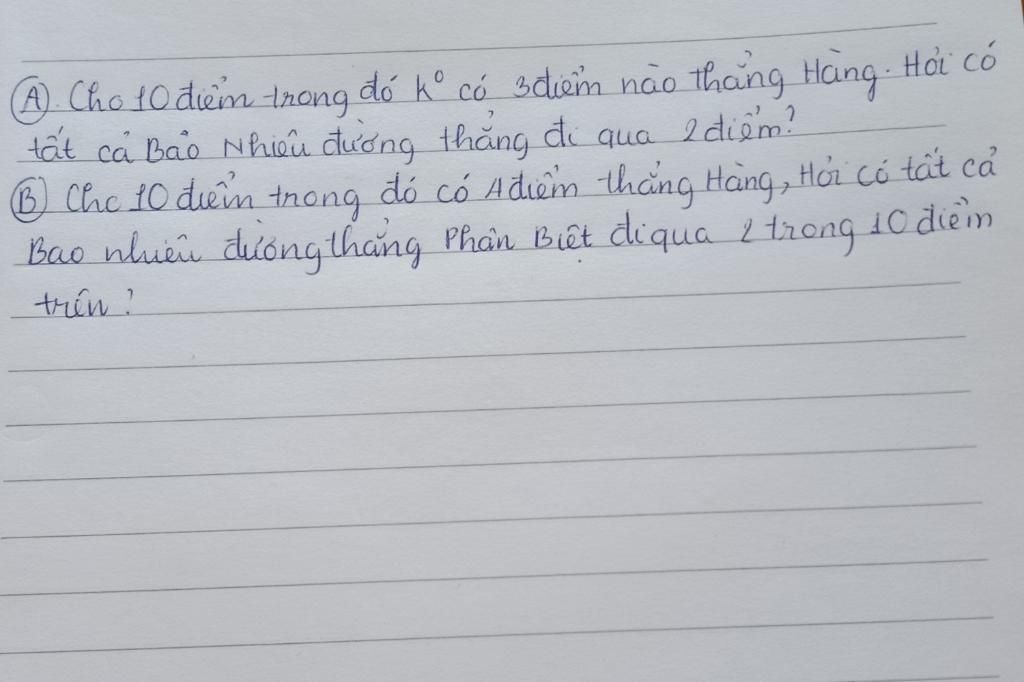 (A). Cho 10 điểm trong đó k° có 3 điểm nào thẳng Hàng. Hỏi có
tất cả Bảo Nhiêu đường thẳng đi qua 2 điểm?
(B) Cho 10 điểm trong đó có 4 điểm thẳng Hàng, Hỏi có tất cả
Bao nhiêu đường thẳng Phân Biệt đi qua 2 trong 10 điểm
trên?